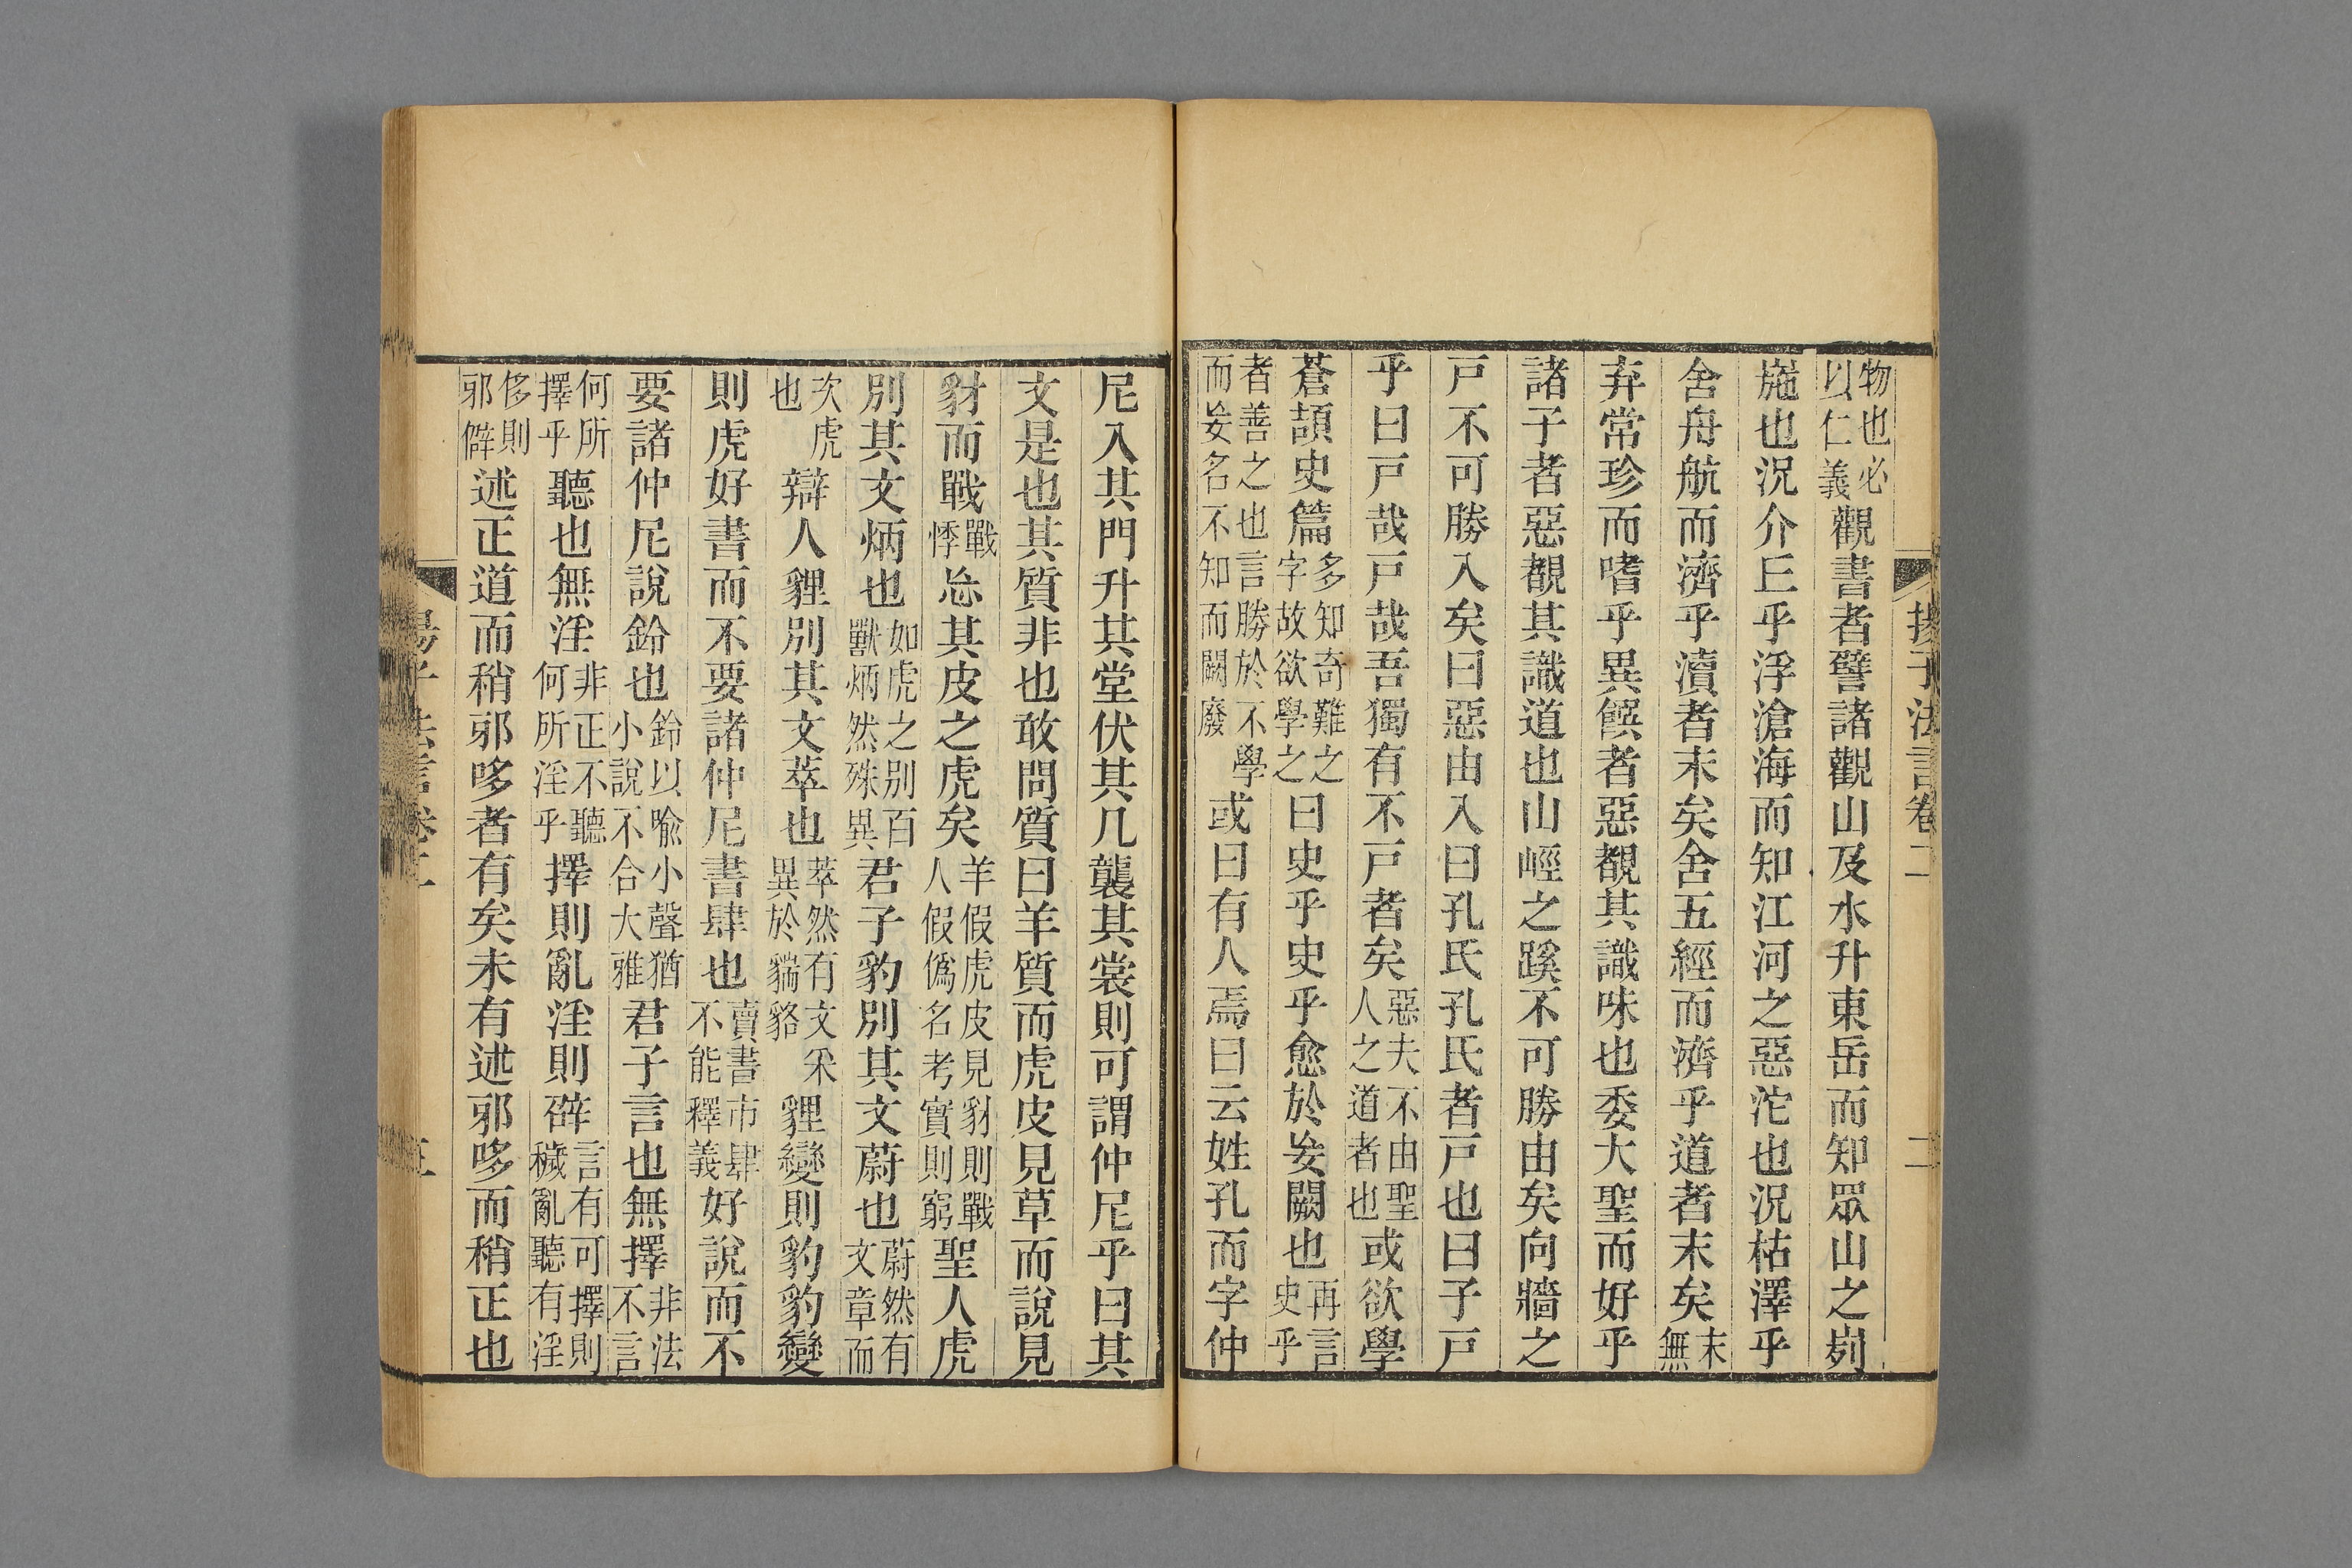 揚子法言卷二　二
物也必以仁義觀書者譬諸觀山及水升東岳而知眾山之峛
崺也況介丘乎浮滄海而知江河之惡沱也況枯澤乎
舍舟航而濟乎瀆者末矣舍五經而濟乎道者末矣末無
弃常珍而嗜乎異饌者惡覩其識味也委大聖而好乎
諸子者惡覩其識道也山𡷨之蹊不可勝由矣向牆之
戸不可勝入矣曰惡由入曰孔氏孔氏者戸也曰子戸
乎曰戸哉戸哉吾獨有不戸者矣惡夫不由聖人之道者也或欲學
蒼頡史篇多知奇難之字故欲學之曰史乎史乎愈於妄闕也再言史乎
者善之也言勝於不學而妄名不知而闕廢或曰有人焉曰云姓孔而字仲
尼入其門升其堂伏其几襲其裳則可謂仲尼乎曰其
文是也其質非也敢問質曰羊質而虎皮見草而說見
豺而戰戰悸忘其皮之虎矣羊假虎皮見豺則戰人假僞名考實則窮聖人虎
別其文炳也如虎之別百獸炳然殊異君子豹別其文蔚也蔚然有文章而
次虎也辯人貍別其文萃也萃然有文采異於貒貉貍變則豹豹變
則虎好書而不要諸仲尼書肆也賣書市肆不能釋義好說而不
要諸仲尼說鈴也鈴以喻小聲猶小說不合大雅君子言也無擇非法不言
何所擇乎聽也無淫非正不聽何所淫乎擇則亂淫則辟言有可擇則穢亂聽有淫
侈則邪僻述正道而稍邪哆者有矣未有述邪哆而稍正也
揚子法言卷二　三